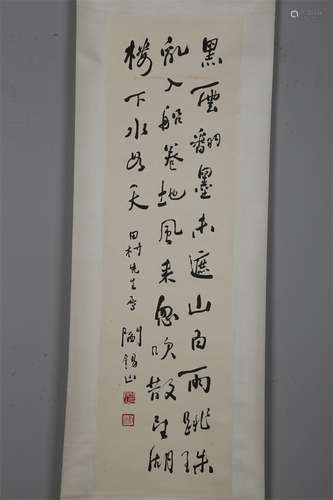 黑雲翻墨未遮山白雨跳珠
亂入船卷地風来忽吹散望湖
樓下水如天
田村先生属
閻錫山